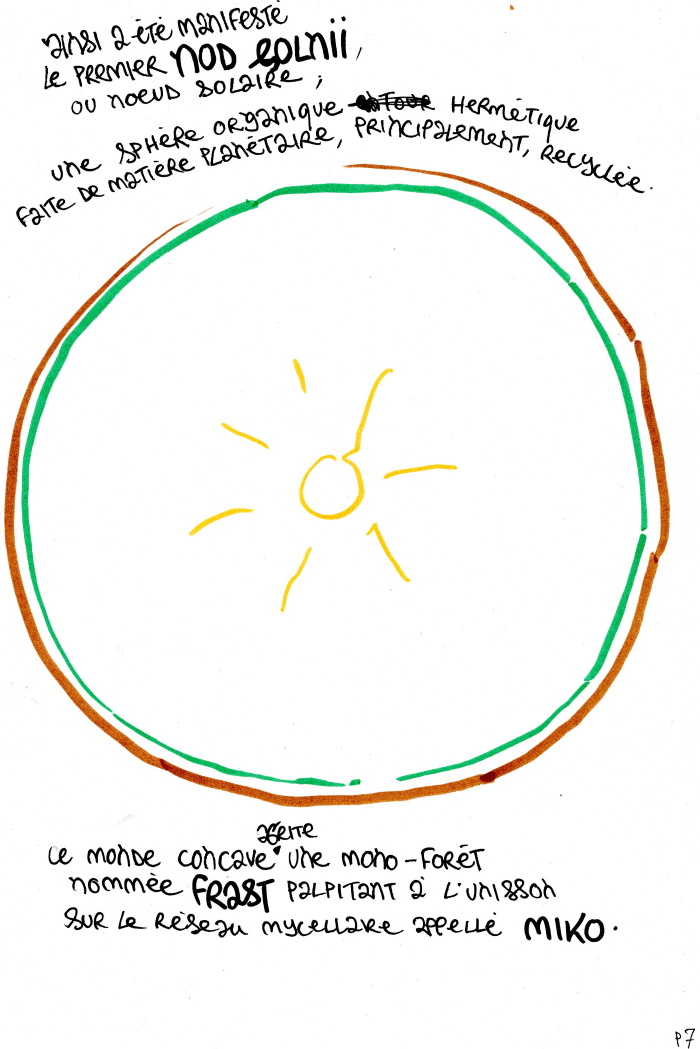 ainsi a été manifesté
le premier NOD SOLNII,
ou noeud solaire ;
une sphère organique hermétique
faite de matière planétaire, principalement, recyclée.
abrite
ce monde concave une mono-forêt
nommée FRAST palpitant à l'unisson
sur le réseau mycellaire appellé MIKO.
P7